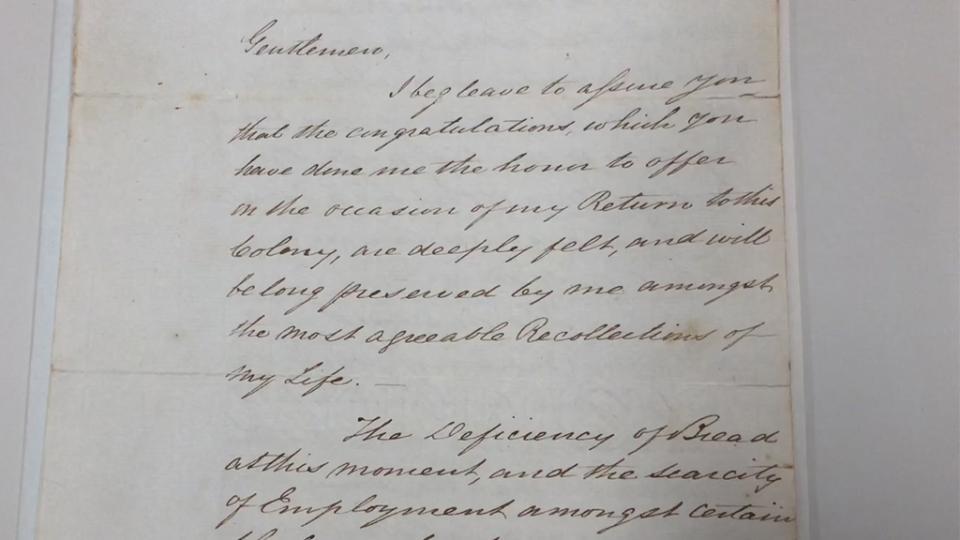 Gentlemen,
I beg leave to assure you
that the congratulations, which you
have done me the honor to offer
on the occasion of my Return to this
Colony, are deeply felt, and will
be long preserved by me amongst
the most agreeable Recollections of
my Life. —
The Deficiency of Bread
at this moment, and the scarcity
of Employment amongst certain